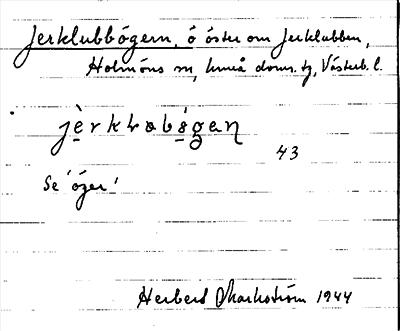 Jerklubbögern, ö öster om Jerklubben,
Holmöns sn, Umeå doms. tg, Västerb. l.
jèrklobógen
43
Se 'öger'
Herberd Markström 1944